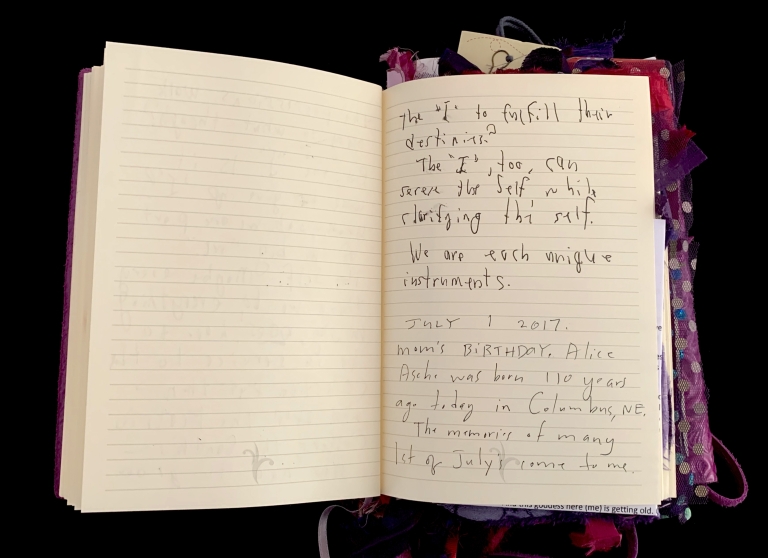 The "I" to fulfill their
destinies?
The "I", too, can
serve the Self while
clarifying the self.
We are each unique
instruments.
JULY 1 2017.
mom's BIRTHDAY. Alice
Asche was born 110 years
ago today in Columbus, NE.
The memories of many
1st of July's come to me.
this goddess here (me) is getting old.